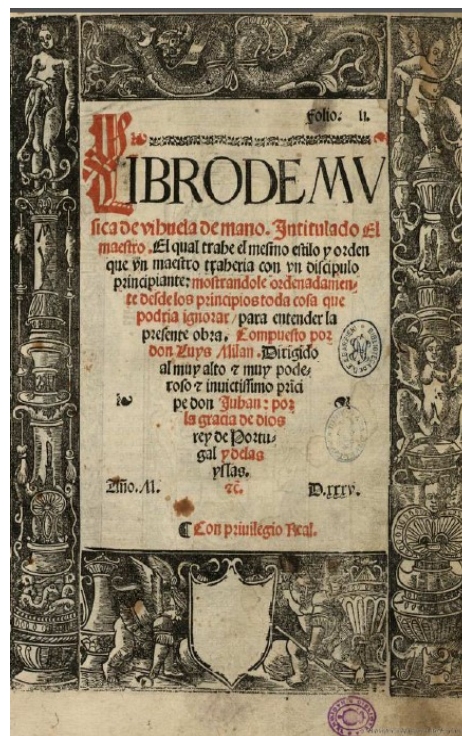 Folio. ii.
LIBRO DE MV
sica de vihuela de mano. Intitulado El
maestro. El qual trahe el mesmo estilo y orden
que vn maestro traheria con vn discipulo
principiante: mostrandole ordenadamen-
te desde los principios toda cosa que
podria ignorar/ para entender la
presente obra. Compuesto por
don Luys Milan. Dirigido
al muy alto & muy pode-
roso & inuictissimo prici
pe don Juhan: por
la gracia de dios
rey de Portu-
gal y delas
yslas.
Año. M. &c. D.xxxv.
Con priuilegio Real.